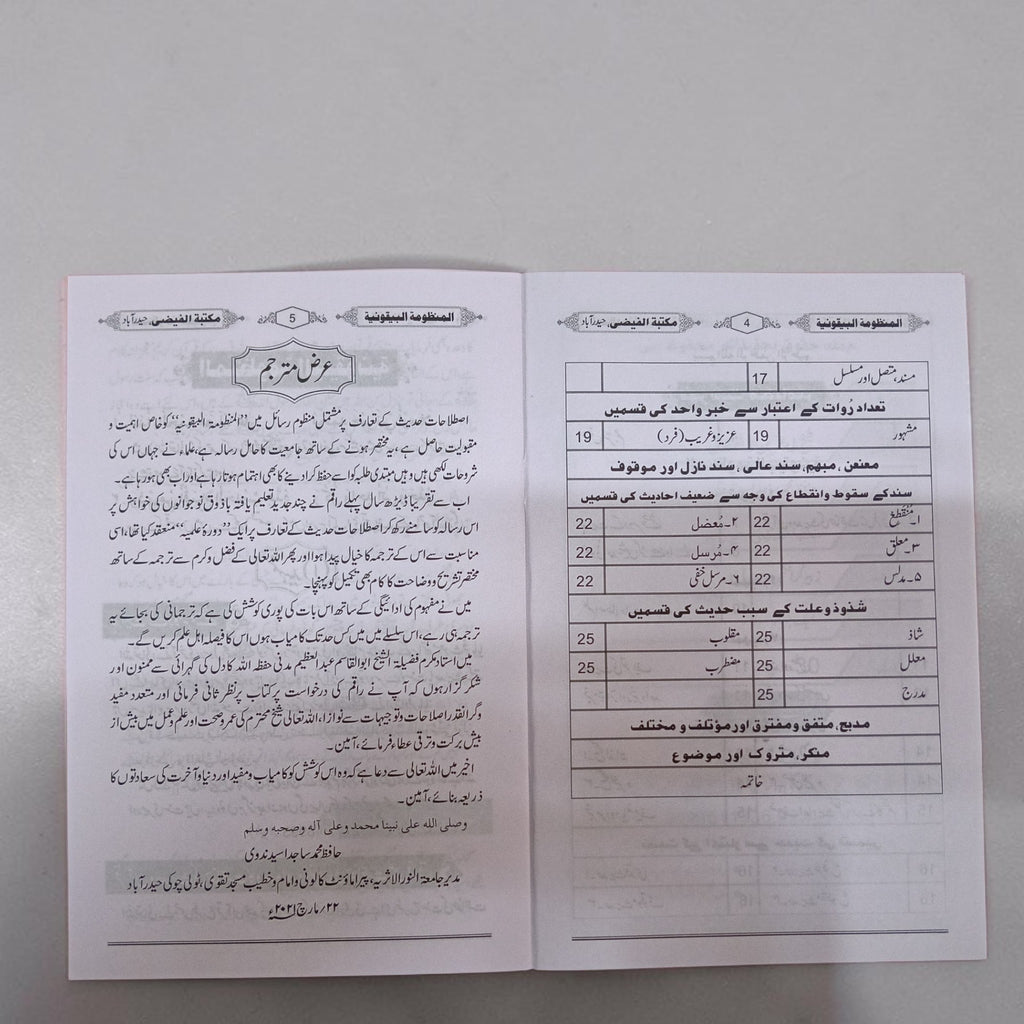 المنظومة البيقونية 4 مكتبة الفيضى، حيدرآباد
مسند، متصل اور مسلسل 17
تعداد رُوات کے اعتبار سے خبر واحد کی قسمیں
مشہور 19 عزیز و غریب (فرد) 19
معنعن، مبهم، سند عالی، سند نازل اور موقوف
سند کے سقوط وانقطاع کی وجہ سے ضعیف احادیث کی قسمیں
۱۔ مُنقطع 22 ۲۔ مُعضل 22
۳۔ معلق 22 ۴۔ مُرسل 22
۵۔ مدلس 22 ۶۔ مرسل خفی 22
شذوذ وعلت کے سبب حدیث کی قسمیں
شاذ 25 مقلوب 25
معلل 25 مضطرب 25
مدرج 25
مدبج، متفق ومفترق اور مؤتلف و مختلف
منکر، متروک اور موضوع
خاتمہ
المنظومة البيقونية 5 مكتبة الفيضى، حیدرآباد
عرض مترجم
اصطلاحات حدیث کے تعارف پر مشتمل منظوم رسائل میں ”المنظومة البيقونية“ کو خاص اہمیت و
مقبولیت حاصل ہے، یہ مختصر ہونے کے ساتھ جامعیت کا حامل رسالہ ہے، علماء نے جہاں اس کی
شروحات لکھی ہیں وہیں مبتدی طلبہ کو اسے حفظ کرا دینے کا بھی اہتمام ہوتا رہا ہے اور اب بھی ہو رہا ہے۔
اب سے تقریباً ڈیڑھ سال پہلے راقم نے چند جدید تعلیم یافتہ با ذوق نوجوانوں کی خواہش پر
اس رسالہ کو سامنے رکھ کر اصطلاحات حدیث کے تعارف پر ایک ”دورۂ علمیہ“ منعقد کیا تھا، اسی
مناسبت سے اس کے ترجمہ کا خیال پیدا ہوا اور پھر اللہ تعالی کے فضل و کرم سے ترجمہ کے ساتھ
مختصر تشریح و وضاحت کا کام بھی تکمیل کو پہنچا۔
میں نے مفہوم کی ادائیگی کے ساتھ اس بات کی پوری کوشش کی ہے کہ ترجمانی کی بجائے یہ
ترجمہ ہی رہے، اس سلسلے میں میں کس حد تک کامیاب ہوں اس کا فیصلہ اہل علم کریں گے۔
میں استاد مکرم فضیلۃ الشیخ ابوالقاسم عبدالعظیم مدنی حفظہ اللہ کا دل کی گہرائی سے ممنون اور
شکر گزار ہوں کہ آپ نے راقم کی درخواست پر کتاب پر نظر ثانی فرمائی اور متعدد مفید
وگرانقدر اصلاحات و توجیہات سے نوازا، اللہ تعالی شیخ محترم کی عمر وصحت اور علم و عمل میں بیش از
بیش برکت و ترقی عطاء فرمائے، آمین۔
اخیر میں اللہ تعالی سے دعا ہے کہ وہ اس کوشش کو کامیاب و مفید اور دنیا و آخرت کی سعادتوں کا
ذریعہ بنائے، آمین۔
وصلى الله على نبينا محمد وعلى آله وصحبه وسلم
حافظ محمد ساجد اسید ندوی
مدیر جامعۃ النور الاثریہ، پیراماؤنٹ کالونی و امام و خطیب مسجد تقوی، ٹولی چوکی حیدرآباد
۲۲؍ مارچ ۲۰۲۱ء